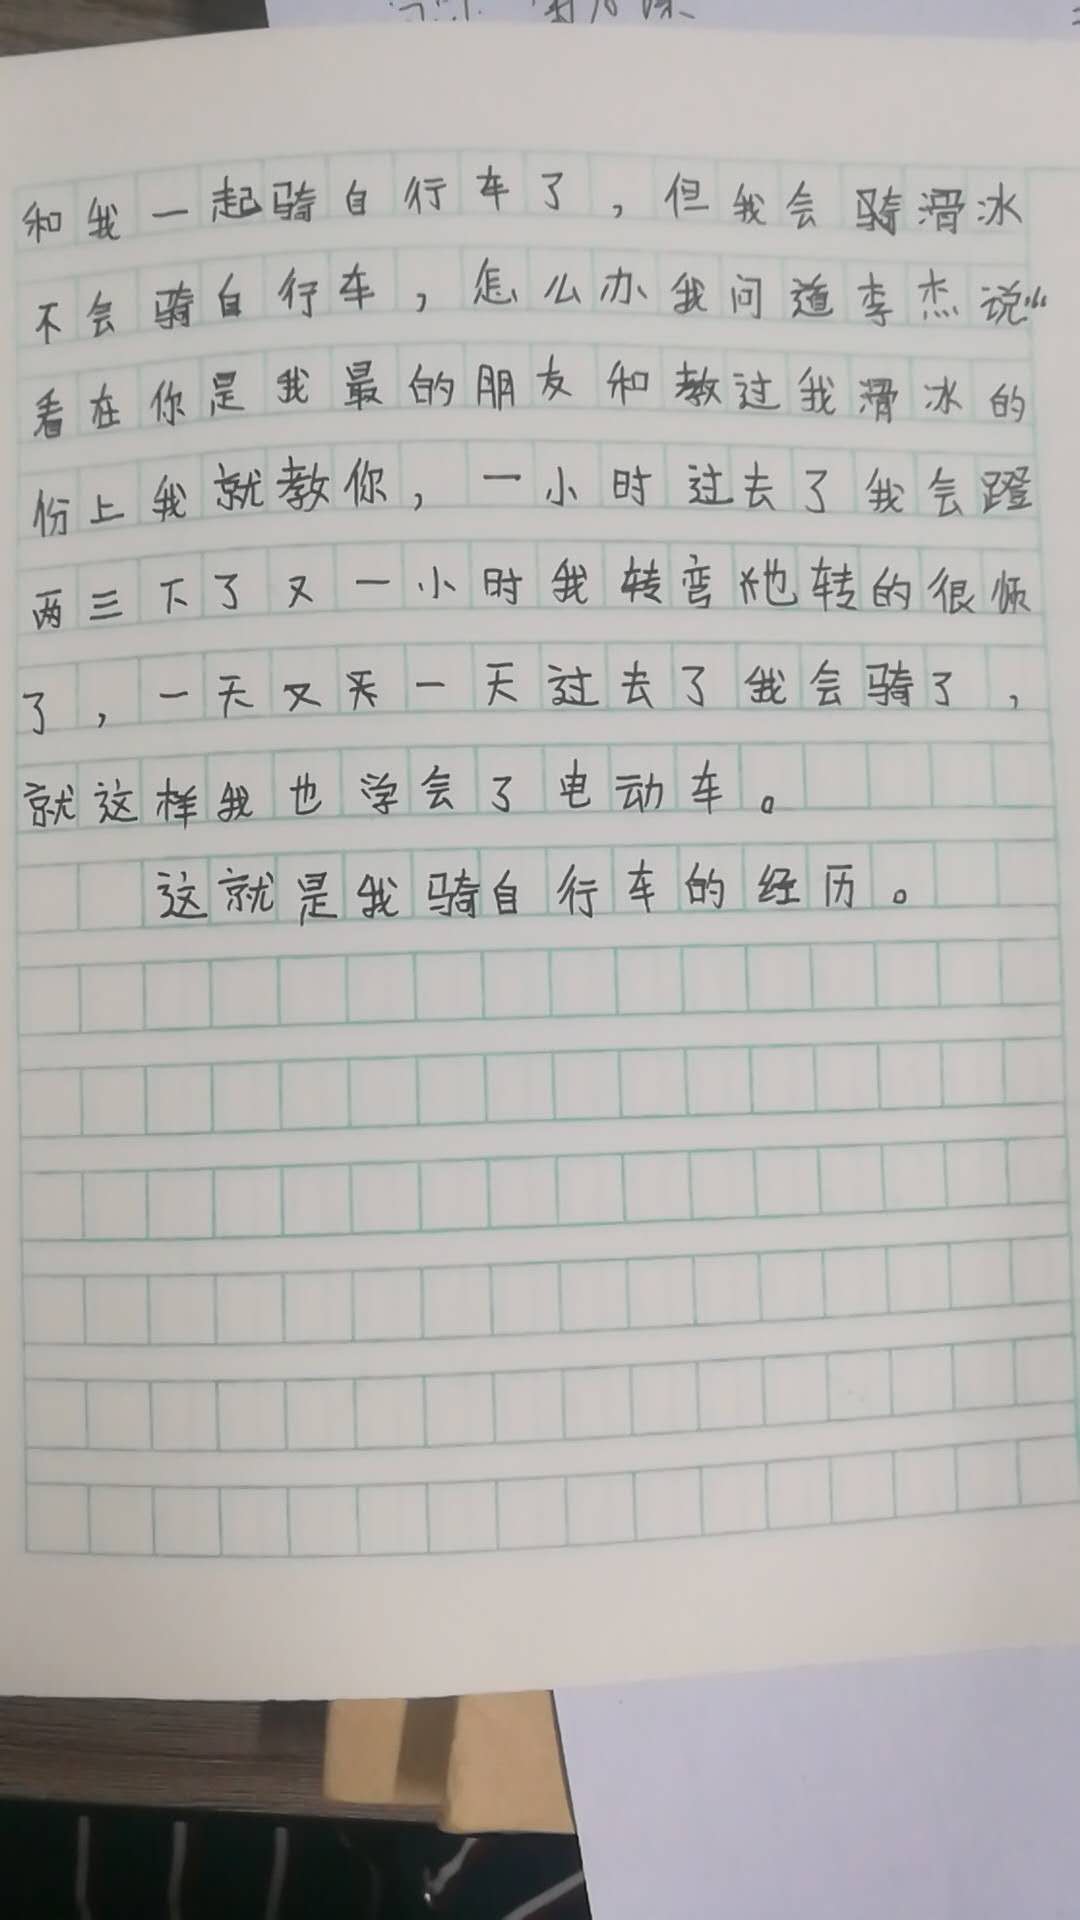 和我一起骑自行车了，但我会骑滑冰
不会骑自行车，怎么办我问道李杰说“
看在你是我最的朋友和教过我滑冰的
份上我就教你，一小时过去了我会蹬
两三下了又一小时我转弯地转的很烦
了，一天又天一天过去了我会骑了，
就这样我也学会了电动车。
这就是我骑自行车的经历。